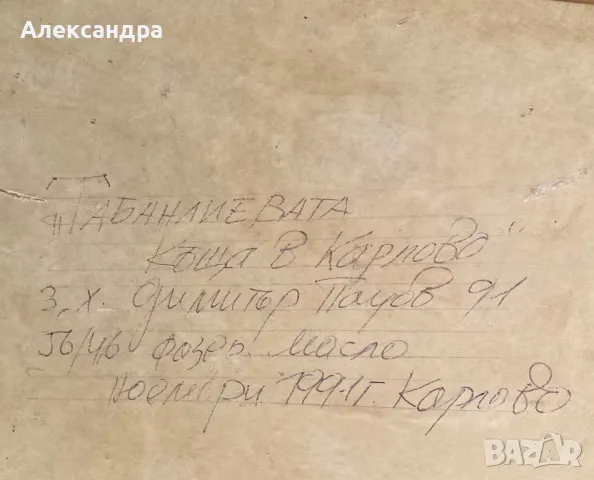 Александра
"ТАБАНЛИЕВАТА
Къща в Карлово"
з.х. Димитър Пауов 91
56/46 фазер. масло
Ноември 1991г. Карлово
BAZAR